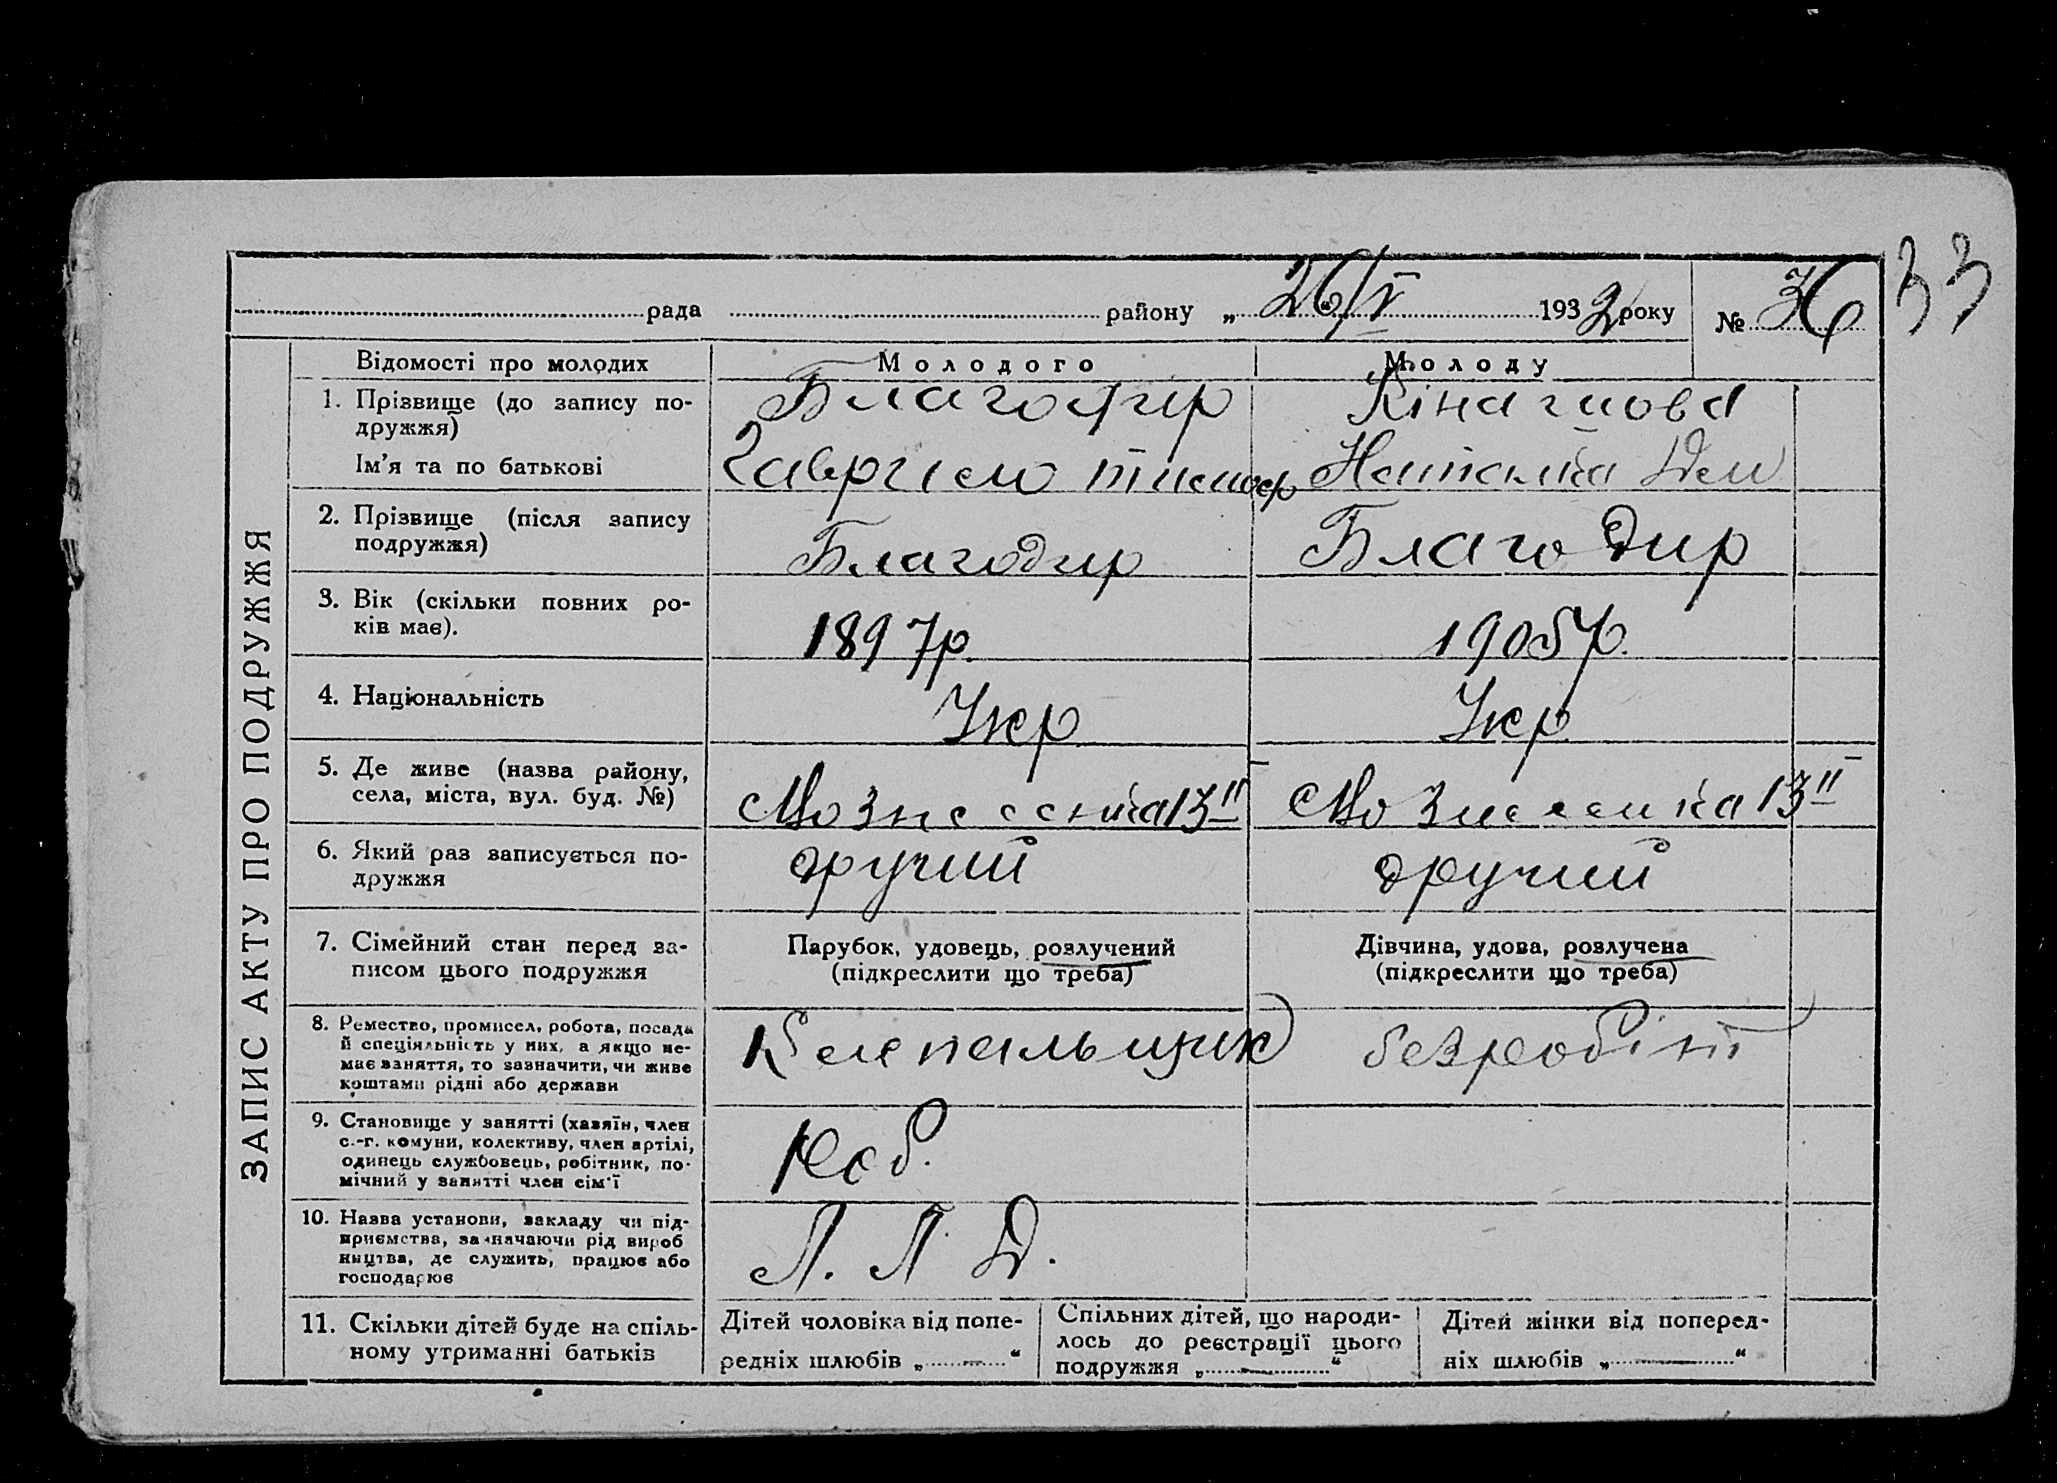 33
рада района „26/V 1932 року № 36
ЗАПИС АКТУ ПРО ПОДРУЖЖЯ
Відомості про молодих Молодого Молоду
1. Прізвище (до запису по-
дружжя)
Благодир
Ім'я та по батькові
Гаврило тимоф Наталка Дем
2. Прізвище (після запису
подружжя)
Благодир Благодир
3. Вік (скільки повних ро-
ків має).
1897р. 1905р.
4. Національність Укр Укр
5. Де живе (назва району,
села, міста, вул. буд. №)
Вознесенка 13 Вознесенка 13
6. Який раз записується по-
дружжя
другий другий
7. Сімейний стан перед за-
писом цього подружжя
Парубок, удовець, розлучений
(підкреслити що треба)
Дівчина, удова, розлучена
(підкреслити що треба)
8. Ремество, промисел, робота, посада
й спеціяльність у них, а якщо не-
має заняття, то зазначити, чи живе
коштами рідні або держави
Клепальщик безробітн
9. Становище у занятті (хазяїн, член
с.-г. комуни, колективу, член артілі,
одинець службовець, робітник, по-
мічний у занятті член сім'ї
Роб.
10. Назва установи, закладу чи під-
приємства, зазначаючи рід вироб
ництва, де служить, працює або
господарює
11. Скільки дітей буде на спіль-
ному утриманні батьків
Дітей чоловіка від попе-
редніх шлюбів „ — “
Спільних дітей, що народи-
лось до реєстрації цього
подружжя „ — “
Дітей жінки від поперед-
ніх шлюбів „ — “